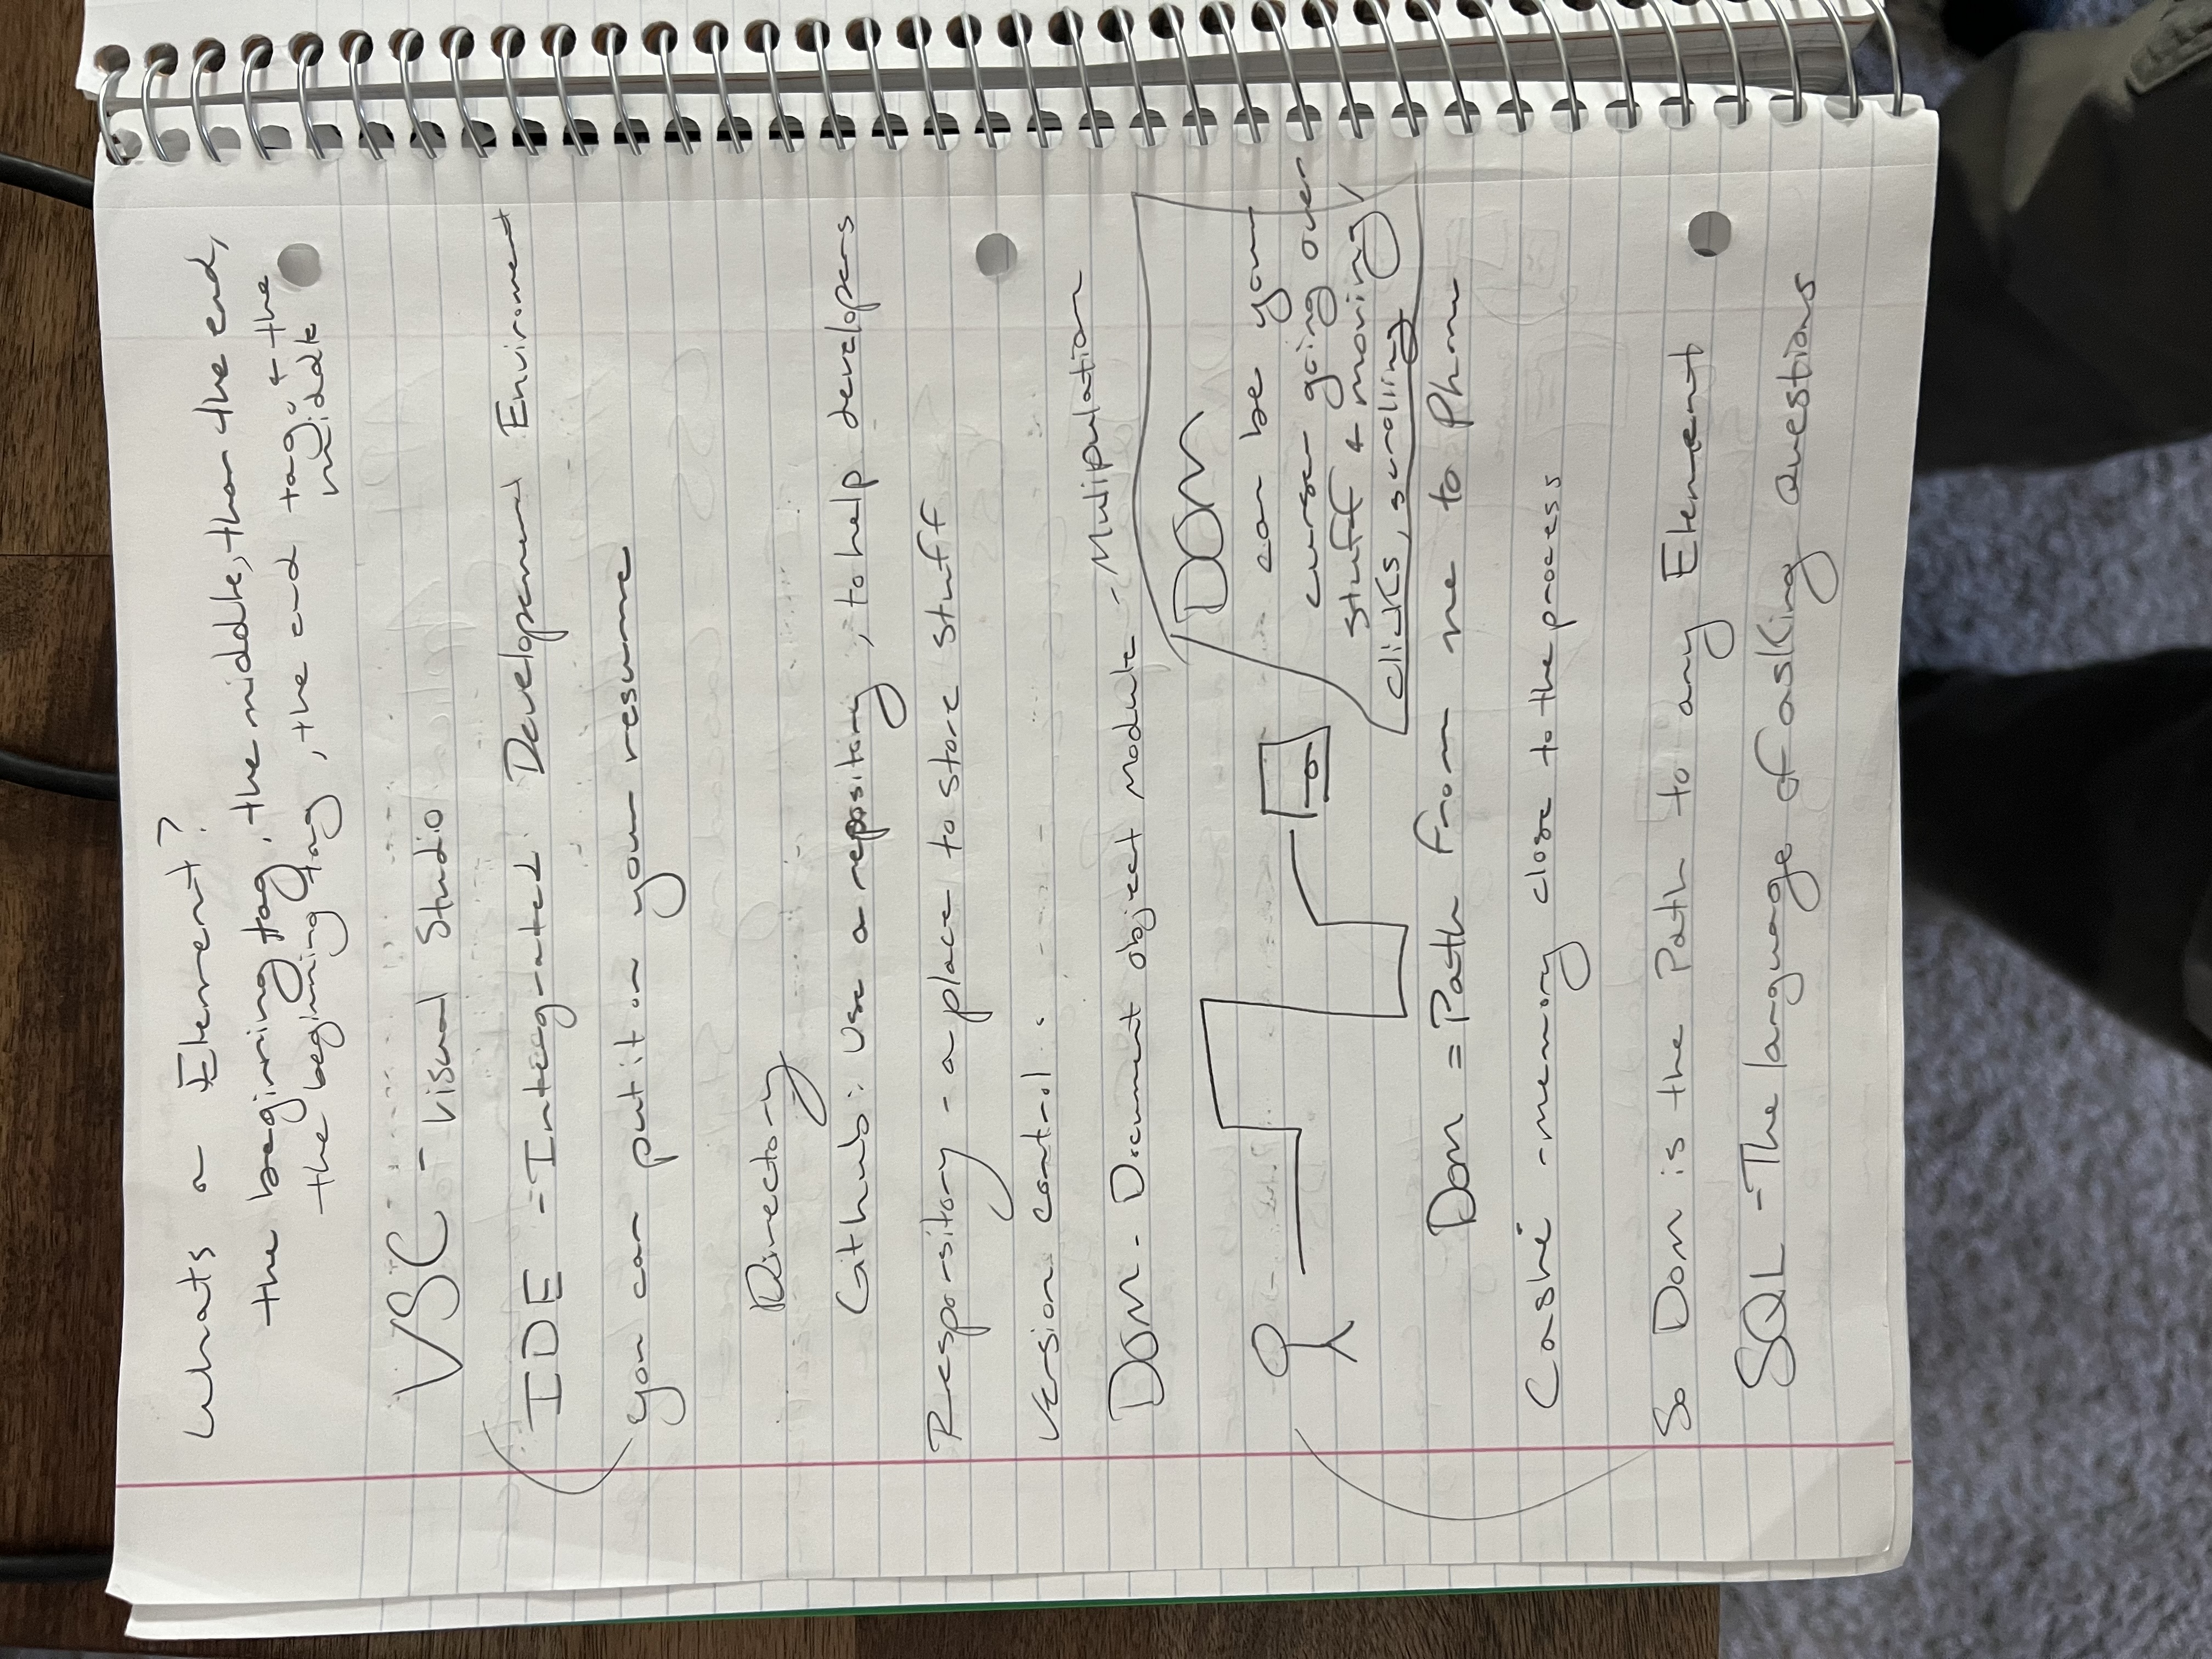 Whats a Element?
the beginning tag, the middle, then the end,
the beginning tag, the end tag, & the
middle
VSC - Visual Studio
IDE - Integrated Developmend Enviroment
you can put it on your resume
Directory
Github: Use a repository, to help developers
Resporsitory - a place to store stuff
Version control
DOM - Document object module - Mulipulation
DOM
can be your
curser going over
stuff & moving,
clicks, scrolling
Dom = Path from me to Phone
Cashé - memory close to the process
So Dom is the Path to any Element
SQL - The language of asking Questions